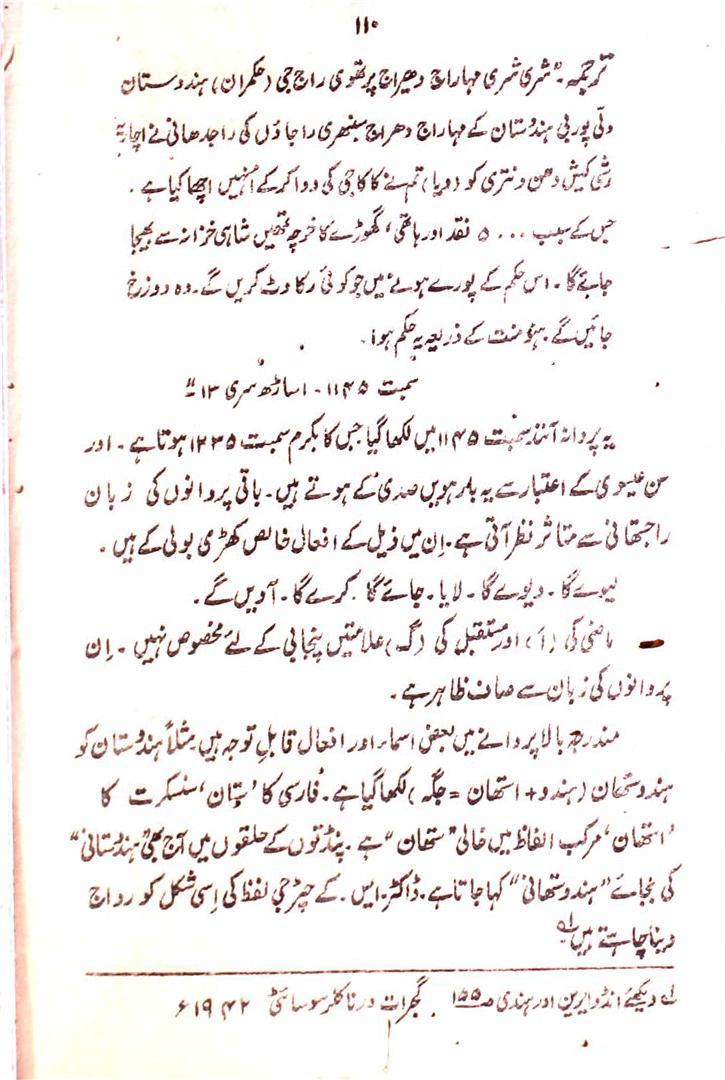 ۱۱۰
ترجمہ۔ "شری شری مہاراج دھیراج پرتھوی راج جی (حکمران) ہندوستان
دلّی پوربی ہندوستان کے مہاراج دھراج سنبھری راجاؤں کی راجدھانی نے اچاریہ
رشی کیش دھن ونتری کو (دیا) تم نے کاکا جی کی دوا کرکے انہیں اچھا کیا ہے۔
جس کے سبب ۵۰۰۰ نقد اور ہاتھی، گھوڑے کا خرچہ تمھیں شاہی خزانہ سے بھیجا
جائے گا۔ اس حکم کے پورے ہونے میں جو کوئی رکاوٹ کریں گے۔ وہ دوزخ
جائیں گے۔ ہنومنت کے ذریعہ یہ حکم ہوا۔
سمبت ۱۱۴۵۔ اساڑھ سری ۱۳"
یہ پروانہ آنند سمبت ۱۱۴۵ میں لکھا گیا جس کا بکرم سمبت ۱۲۳۵ ہوتا ہے۔ اور
سن عیسوی کے اعتبار سے یہ بارہویں صدی کے ہوتے ہیں۔ باقی پروانوں کی زبان
راجستھانی سے متاثر نظر آتی ہے۔ اِن میں ذیل کے افعال خالص کھڑی بولی کے ہیں۔
لیوے گا۔ دیوے گا۔ لایا۔ جائے گا۔ کرے گا۔ آویں گے۔
ماضی کی (اَ) اور مستقبل کی (گ) علامتیں پنجابی کے لئے مخصوص نہیں۔ اِن
پروانوں کی زبان سے صاف ظاہر ہے۔
مندرجہ بالا پروانے میں بعض اسماء اور افعال قابلِ توجہ ہیں مثلاً ہندوستان کو
ہندوستھان (ہندو + استھان = جگہ) لکھا گیا ہے۔ فارسی کا 'ستان' سنسکرت کا
'استھان' مرکب الفاظ میں خالی "ستھان" ہے۔ پنڈتوں کے حلقوں میں آج بھی "ہندستانی"
کی بجائے "ہندوستھانی" کہا جاتا ہے۔ ڈاکٹر ایس۔ کے چٹرجی لفظ کی اِسی شکل کو رواج
دینا چاہتے ہیں۔ ؎۱
؎۱ دیکھئے انڈو ایرین اور ہندی صـ ۱۵۵ گجرات ورناکلر سوسائٹی ۱۹۴۲ء